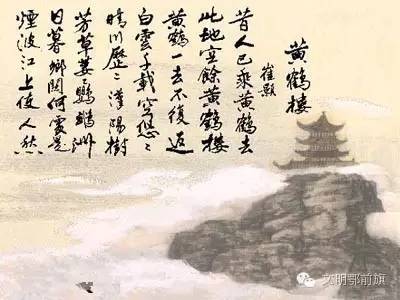 黄鶴樓
崔顥
昔人已乘黄鶴去
此地空餘黄鶴樓
黄鶴一去不復返
白雲千載空悠々
晴川歷々漢陽樹
芳草萋々鸚鵡洲
日暮鄉関何處是
煙波江上使人愁
文明鄂前旗